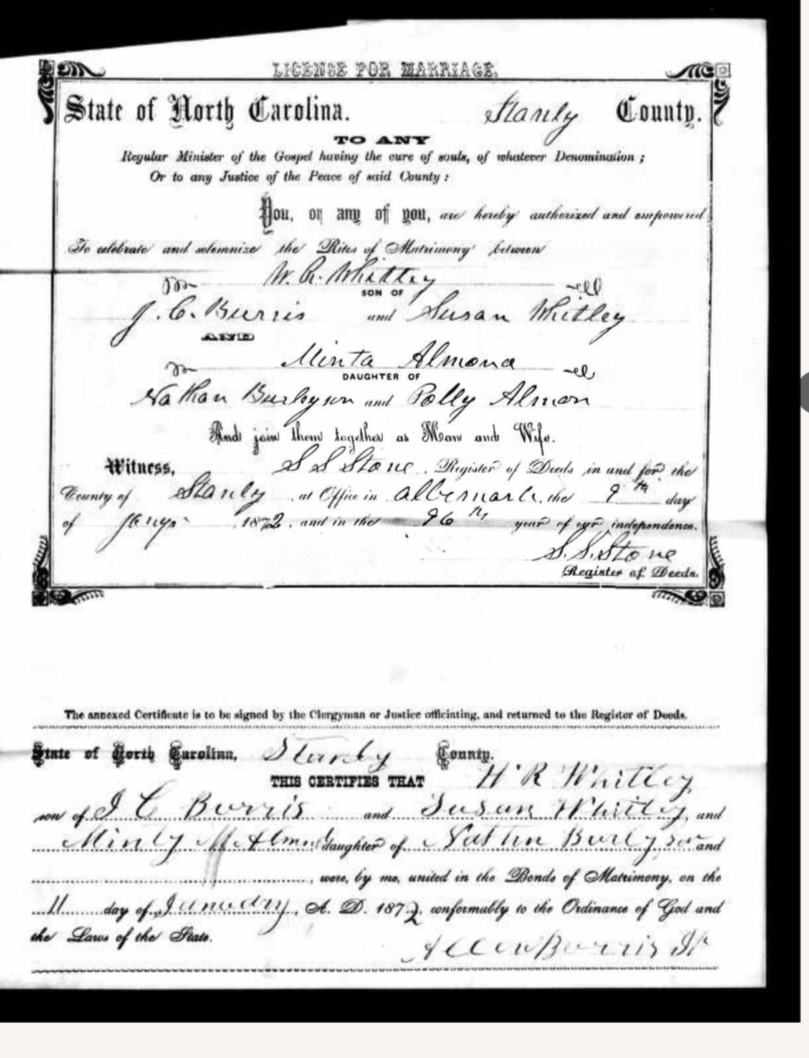 LICENSE FOR MARRIAGE.
State of North Carolina. Stanly County.
TO ANY
Regular Minister of the Gospel having the cure of souls, of whatever Denomination ;
Or to any Justice of the Peace of said County :
You, or any of you, are hereby authorized and empowered
To celebrate and solemnize the Rites of Matrimony between
M W. R. Whitley
SON OF
J. C. Burris and Susan Whitley
AND
M Minta Almond
DAUGHTER OF
Nathan Burlyson and Polly Almon
And join them together as Man and Wife.
Witness, S S Stone, Register of Deeds in and for the
County of Stanly, at Office in Albemarle, the 9th day
of Jany. 1872, and in the 96th, year of our independence.
S. S. Stone
Register of Deeds.
The annexed Certificate is to be signed by the Clergyman or Justice officiating, and returned to the Register of Deeds.
State of North Carolina, Stanly County.
THIS CERTIFIES THAT W R Whitley
son of J C Burris and Susan Whitley and
Minty M Almond daughter of and
, were, by me, united in the Bonds of Matrimony, on the
11 day of January, A. D. 1872, conformably to the Ordinance of God and
the Laws of the State.
Allen Burris